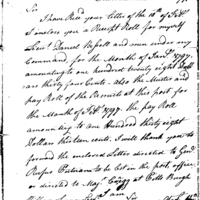 Sir
I have Rec'd your letter of the 18th of Feby
I inclose you a Receipt Roll for myself
Lieut Daniel Bissell and men under my
Command, for the Month of Jany 1797,
amounting to one hundred twenty eight Doll
ars thirty four Cents. also the Muster and
pay Roll of the Permits at this post for
the month of Feby 1797. the pay Roll
amounting to one Hundred thirty eight
Dollars thirteen cents. I will thank you to
forward the enclosed Letter directed to Genl
Rufus Putnam to be put in the post office
or directed to Majr Craigg at Pitts Burgh
I am
Sir